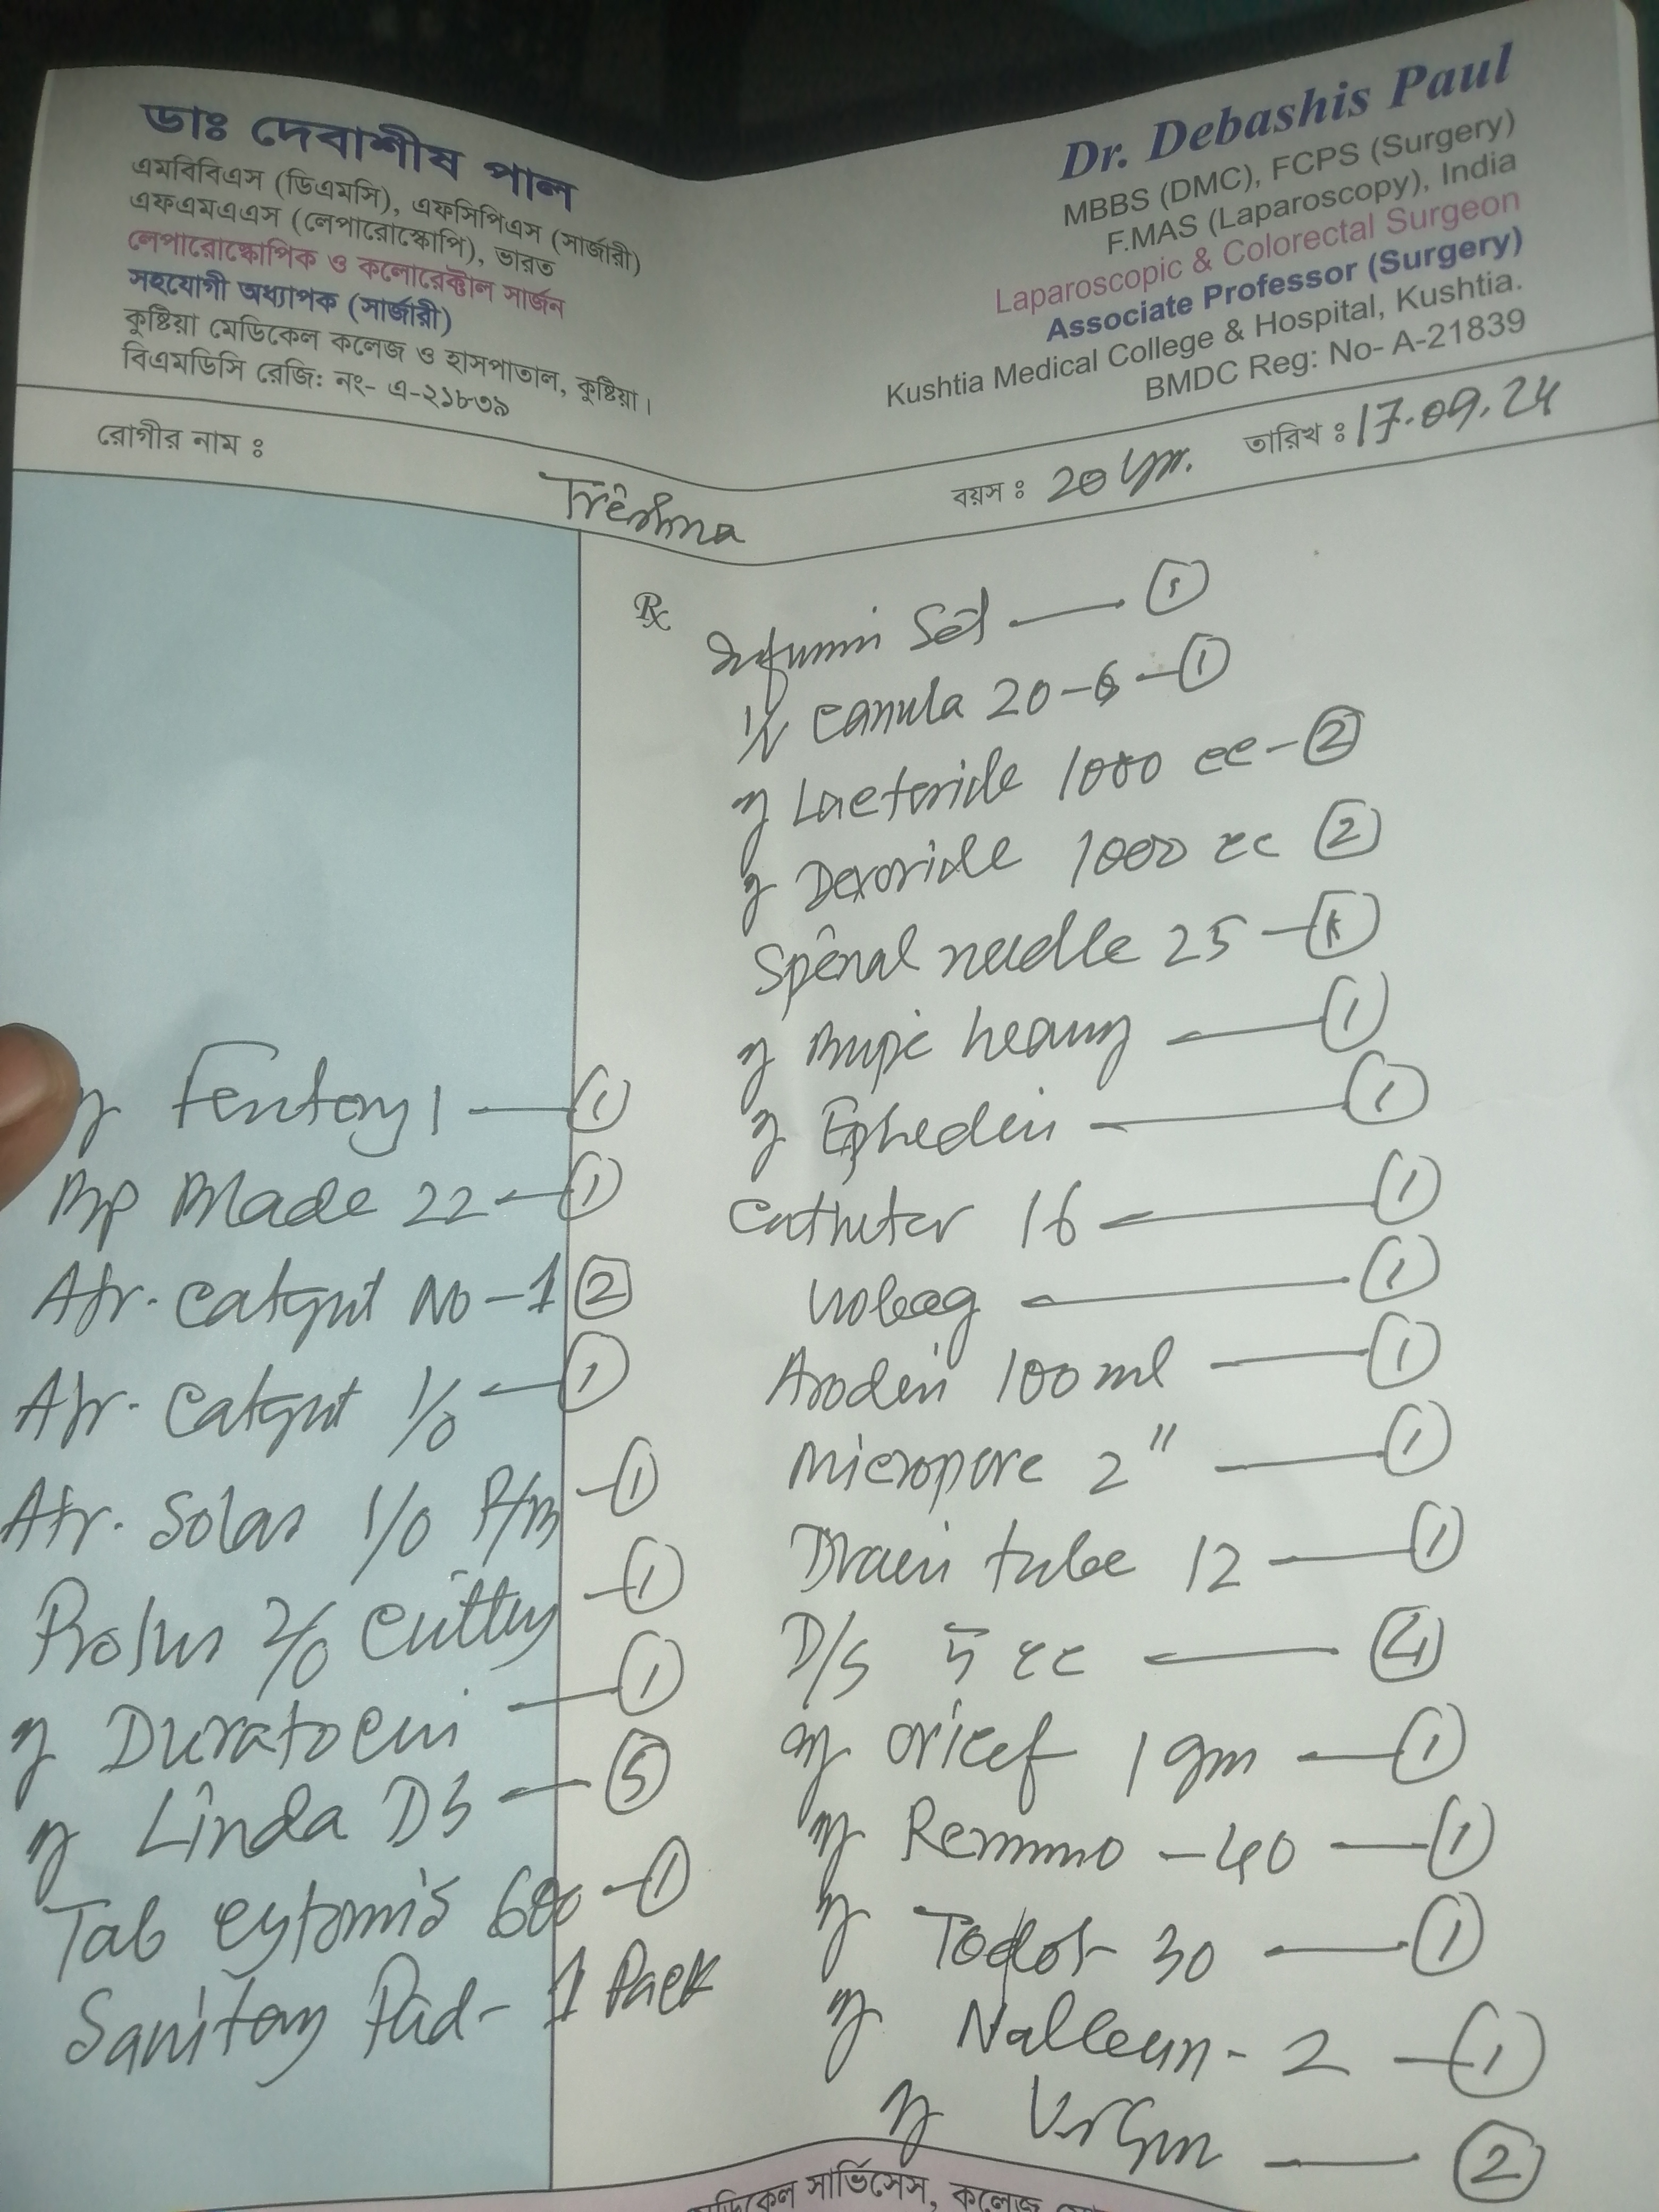 ডাঃ দেবাশীষ পাল
এমবিবিএস (ডিএমসি), এফসিপিএস (সার্জারী)
এফএমএএস (লেপারোস্কোপি), ভারত
লেপারোস্কোপিক ও কলোরেক্টাল সার্জন
সহযোগী অধ্যাপক (সার্জারী)
কুষ্টিয়া মেডিকেল কলেজ ও হাসপাতাল, কুষ্টিয়া।
বিএমডিসি রেজি: নং- এ-২১৮৩৯
Dr. Debashis Paul
MBBS (DMC), FCPS (Surgery)
F.MAS (Laparoscopy), India
Laparoscopic & Colorectal Surgeon
Associate Professor (Surgery)
Kushtia Medical College & Hospital, Kushtia.
BMDC Reg: No- A-21839
রোগীর নাম : বয়স : 20 yrs. তারিখ : 17.09.24
Rx
Set — 1
I/V Canula 20-G — 1
Lactoride 1000 cc — 2
Dexoride 1000 cc 2
Spinal needle 25 — 1
Bupi heavy — 1
Ephedin — 1
Catheter 16 — 1
Urobag — 1
Arodin 100 ml — 1
Micropore 2" — 1
Drain tube 12 — 1
D/S 5 cc — 4
Oricef 1 gm — 1
— 40 — 1
30 — 1
- 2 — 1
— 2
Fentanyl — 1
BP Blade 22 — 1
Atr. Catgut No - 1 2
Atr. Catgut 1/0 — 1
Atr. 1/0 R/B — 1
2/0 Cutting — 1
Duratocin — 1
Linda DS — 5
Tab Cytomis 600 — 1
Sanitary Pad - 1 Pack
সার্ভিসেস, কলেজ